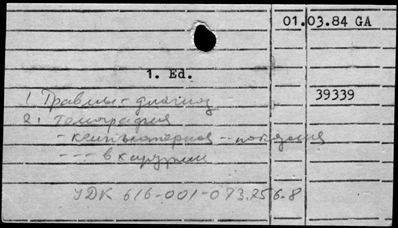 01.03.84 GA
1. Ed.
39339
1. Травмы - диагноз
2. Томография
- компьютерная --
--- в хирургии
УДК 616-001-073.756.8